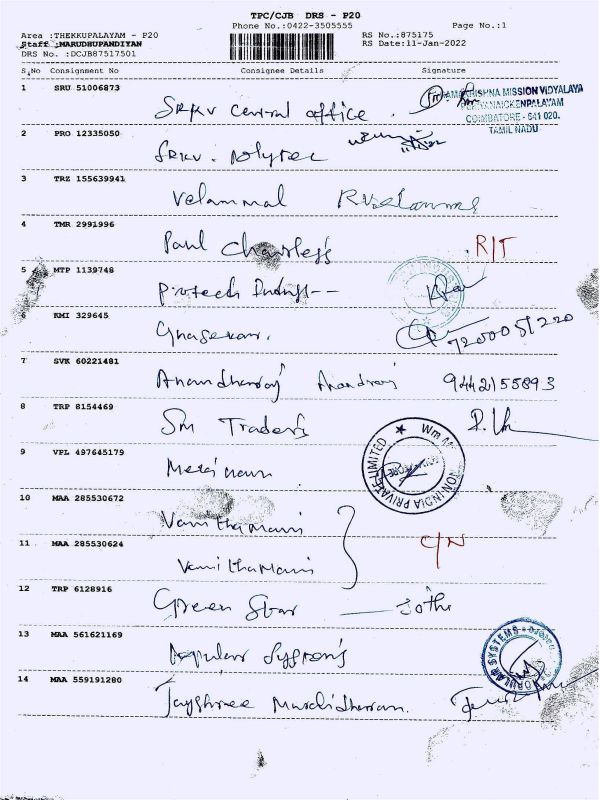 TPC/CJB DRS - P20
Area :THEKKUPALAYAM - P20 Phone No.:0422-3505555 Page No.:1
Staff :MARUDHUPANDIYAN RS No.:875175
DRS No. :DCJB87517501 RS Date:11-Jan-2022
S.No Consignment No Consignee Details Signature
1 SRU 51006873
SRKV Central office.
KRISHNA MISSION VIDYALAYA
PERIYANAICKENPALAYAM
COIMBATORE - 641 020.
TAMIL NADU
2 PRO 12335050
SRKV. Polytec
3 TRZ 155639941
Velammal
4 TMR 2991996
Paul R/T
5 MTP 1139748
Protech
6 KMI 329645
7200051220
7 SVK 60221481
Anandharaj 9442155893
8 TRP 8154469
Sm Traders
9 VPL 497645179
PRIVATE LIMITED
10 MAA 285530672
Vanithamani
11 MAA 285530624 C/N
Vanithamani
12 TRP 6128916
Green Star Jothi
13 MAA 561621169
Popular Systems
POPULAR SYSTEMS
14 MAA 559191280
Jayshree Muralidharan.